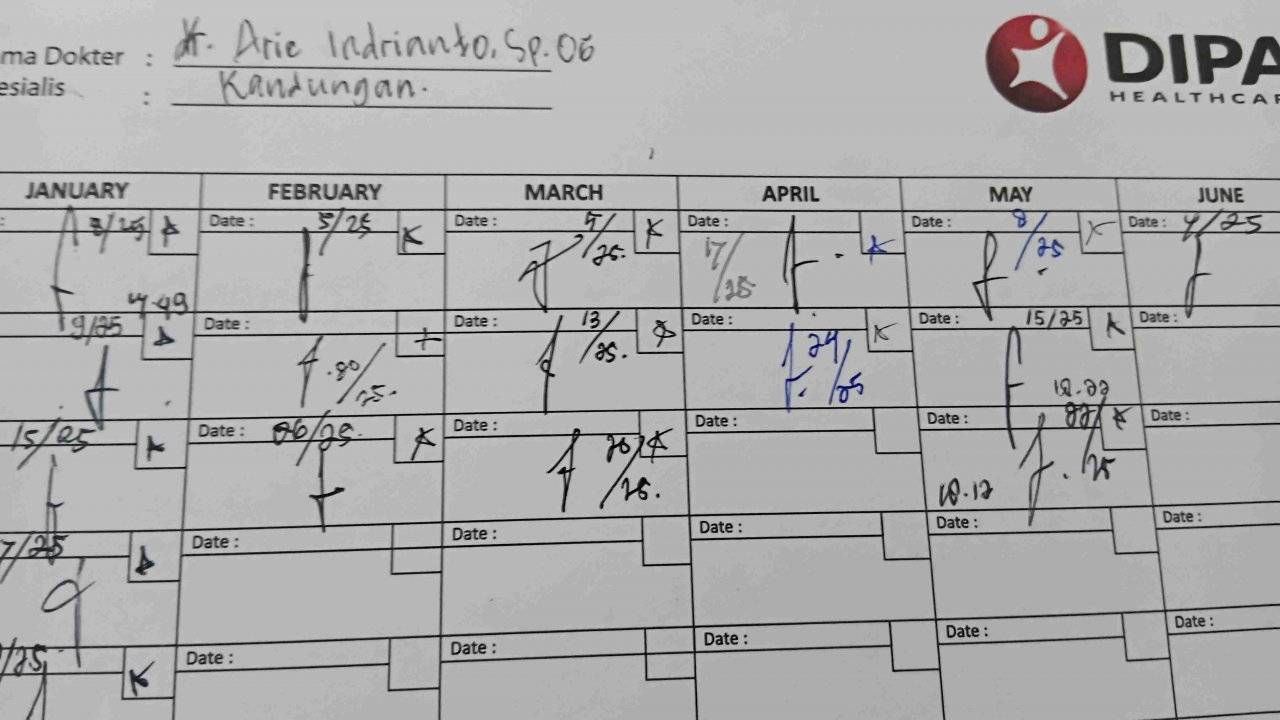 ma Dokter : dr. Arie Indrianto, Sp.OG
esialis : Kandungan.
DIPA
HEALTHCAR
JANUARY FEBRUARY MARCH APRIL MAY JUNE
: Date : 5/25 K Date : 5/25. K Date : 17/25 K Date : 8/25 K Date : 4/25
9/25 Date : 20/25. Date : 13/25. Date : 24/25 K Date : 15/25 K Date :
15/25 K Date : 26/25. K Date : 20/25. K Date : Date : 22/25 K Date :
18.12
7/25 Date : Date : Date : Date : Date :
/25 K Date : Date : Date : Date : Date :